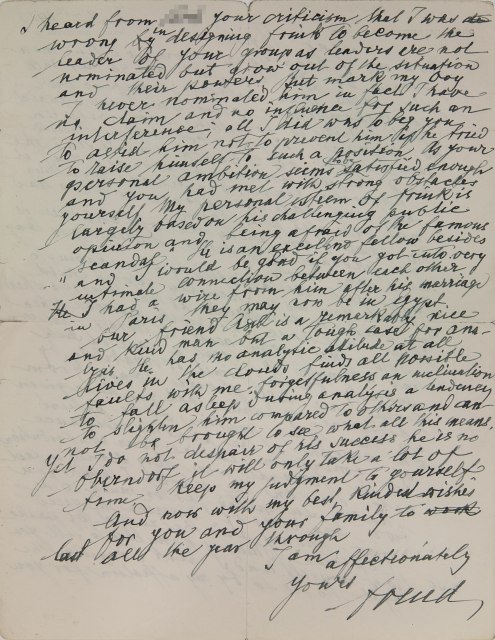 I heard from your criticism that I was
wrong by designing Frink to become the
leader of your group as leaders are not
nominated but grow out of the situation
and their powers. But mark my boy
I never nominated him in fact I have
no claim and no influence for such an
interference, all I did was to beg you
to aid him not to prevent him if he tried
to raise himself to such a position. As your
personal ambition seems satisfied enough
and you had met with strong obstacles
yourself. My personal esteem of Frink is
largely based on his challenging public
opinion and being afraid of the famous
"scandal". He is an excellent fellow besides
and I would be glad if you got into very
intimate connection between each other
I had a wire from him after his marriage
in Paris, they may now be in Egypt
Our friend is a remarkably nice
and kind man but a tough case for ana-
lysis. He has no analytic attitude at all
lives in the clouds finds all possible
faults with me, forgetfulness an inclination
to fall asleep during analysis a tendency
to him compared to others and can
not be brought to see what all this means.
Yet I do not despair of his success he is no
Oberndorf it will only take a lot of
time. Keep my judgment to yourself
And now with my best kindest wishes
for you and your family to
last all the year through
I am affectionately
yours
Freud